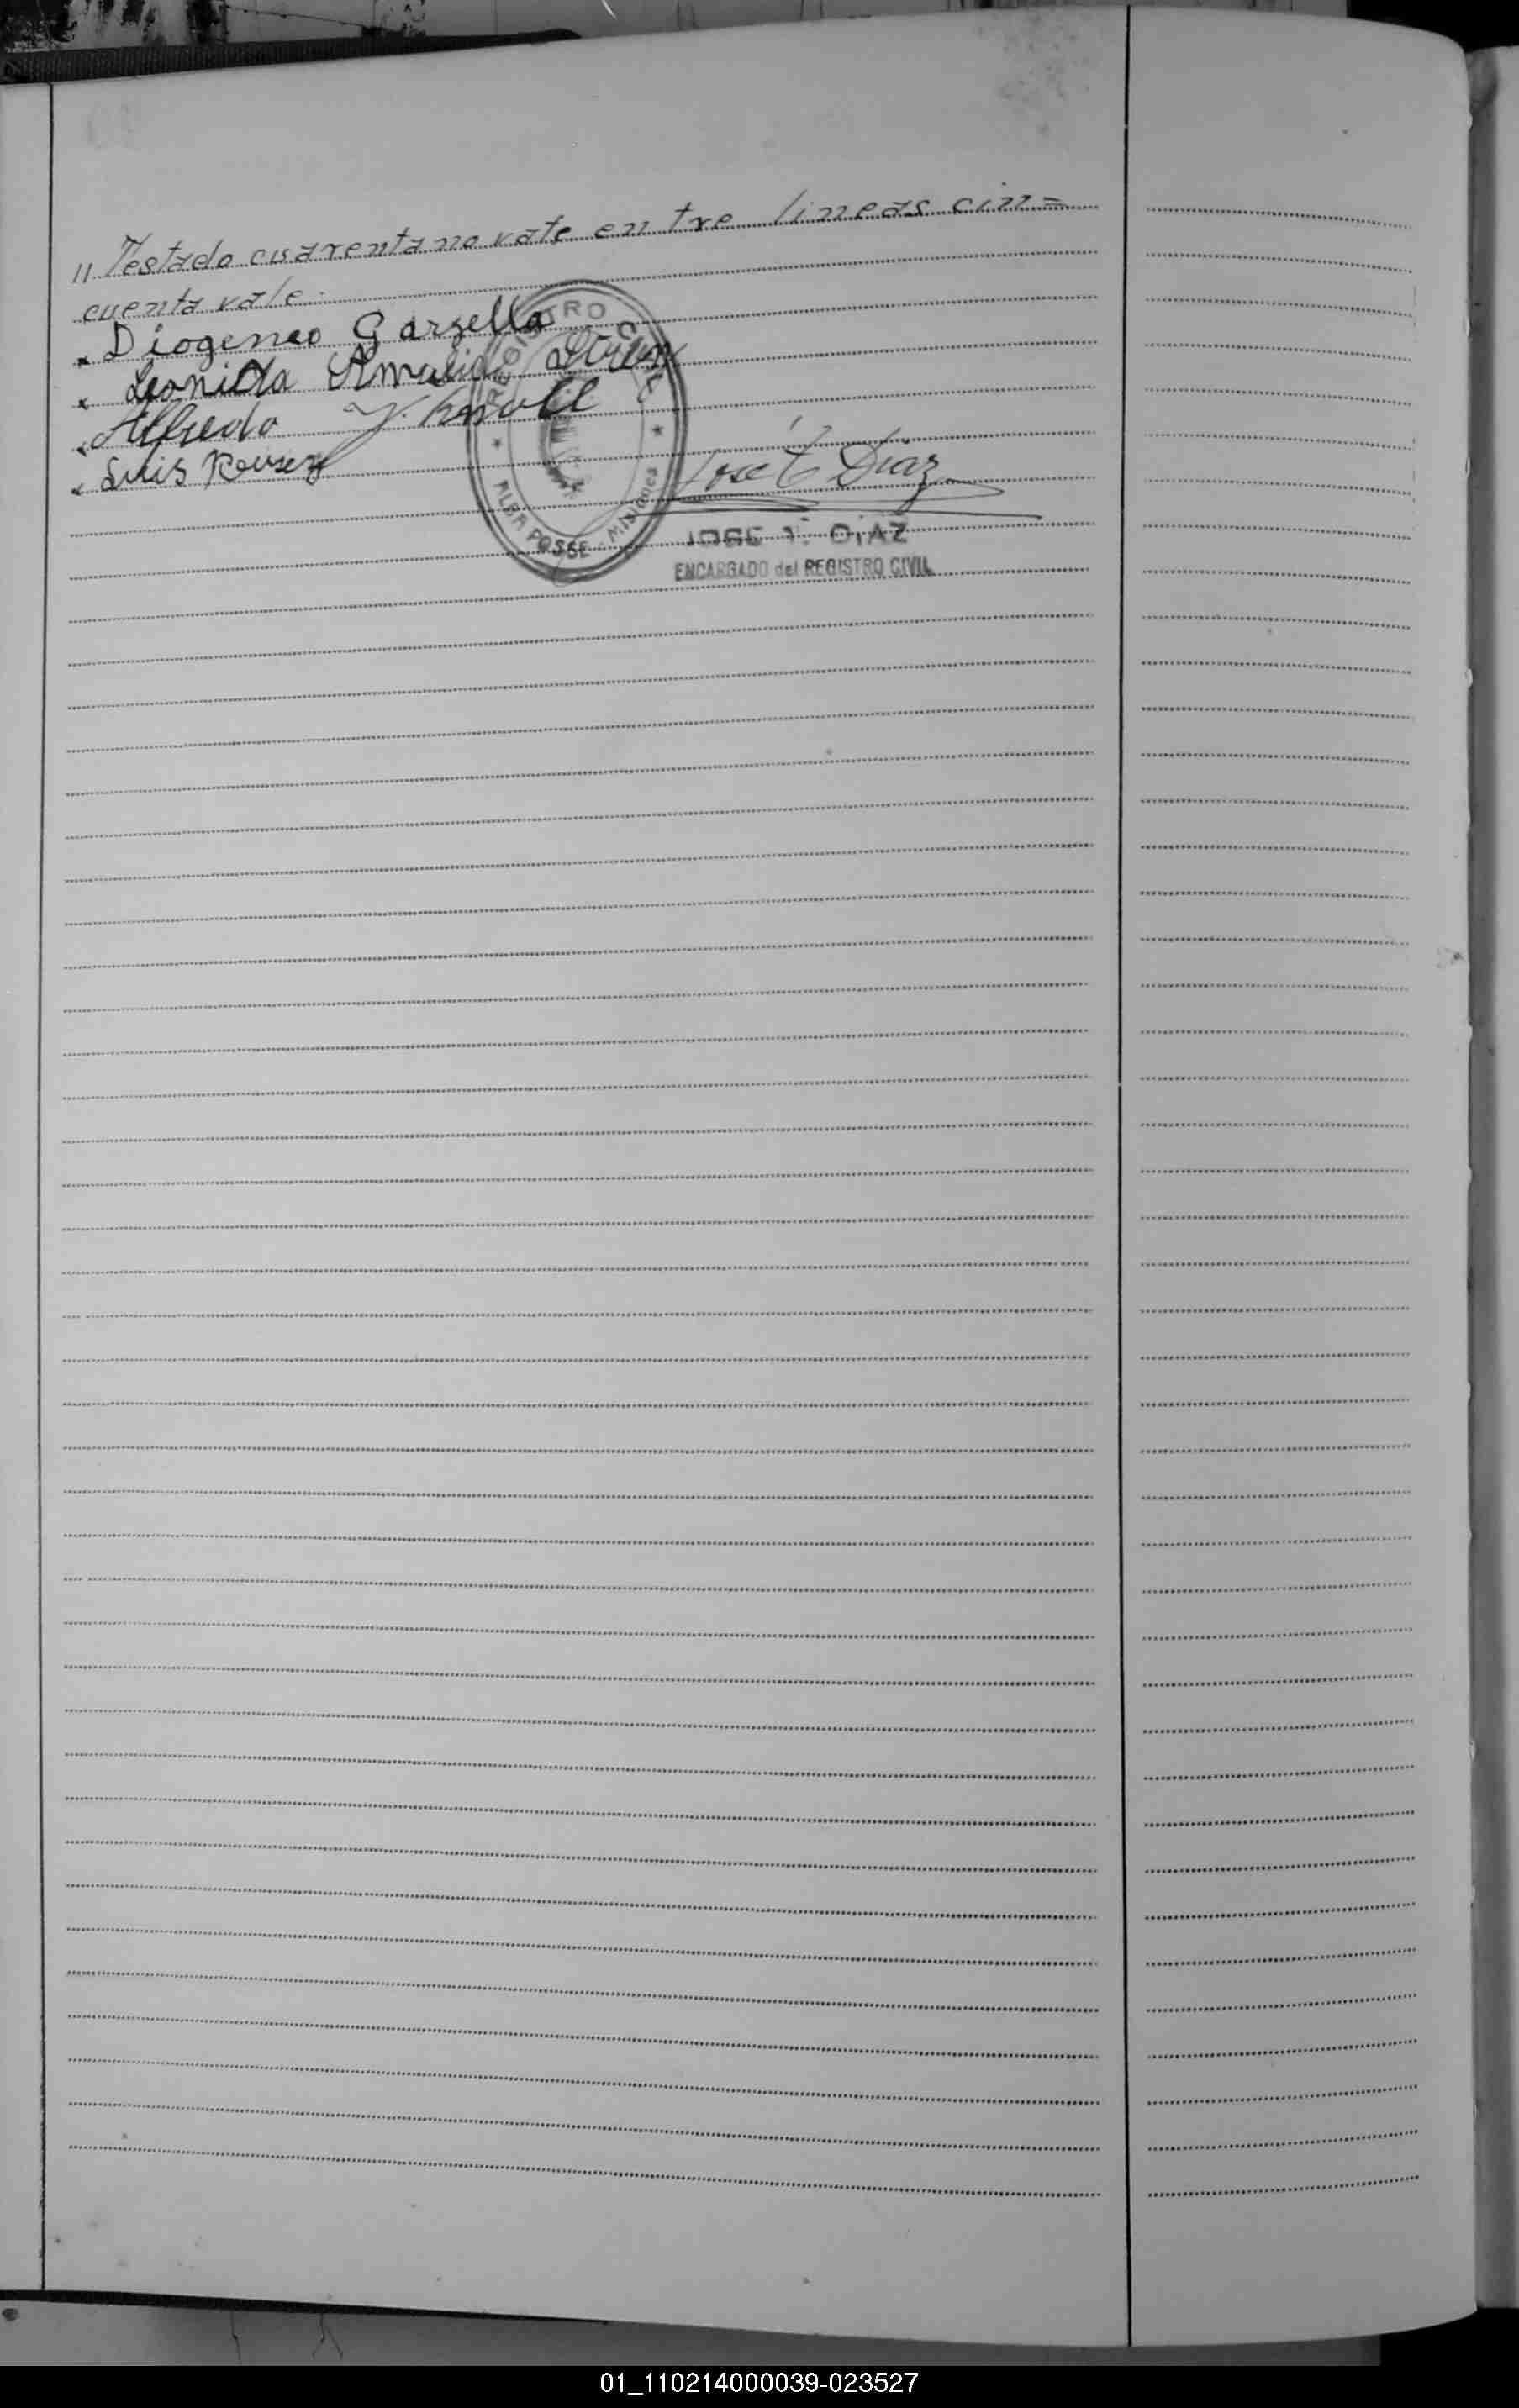 " Testado cuarenta no vale en tre lineas cin=
cuenta vale.
Diogenes Garzella
Leonida Amalia
Alfredo J. Knoll
Luis
REGISTRO CIVIL
ALBA POSSE - Misiones
Jose T Diaz
JOSE T. DIAZ
ENCARGADO del REGISTRO CIVIL
01_110214000039-023527